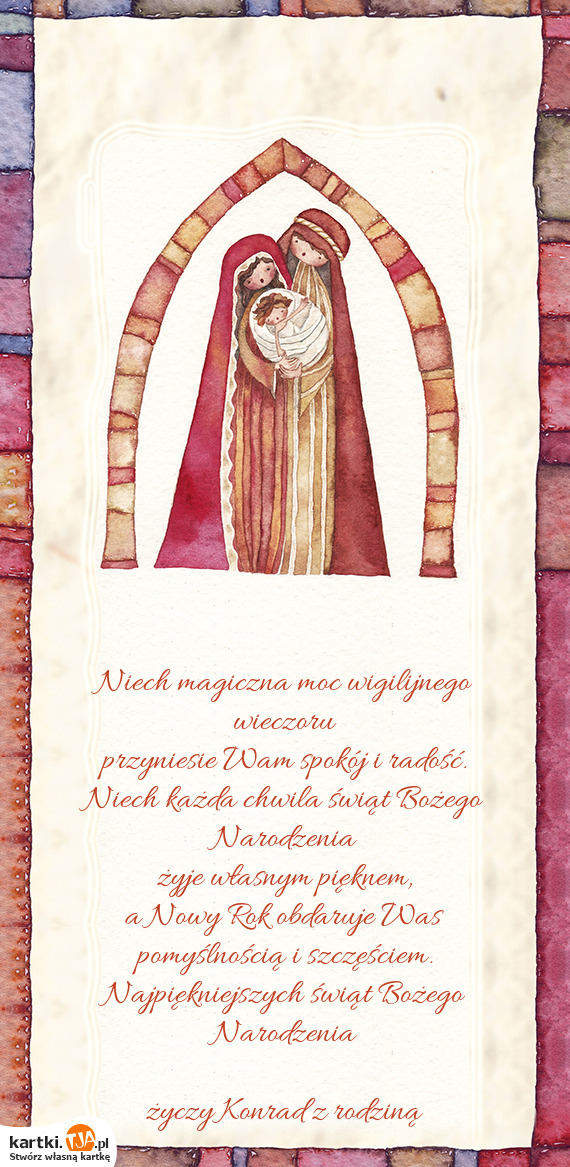 Niech magiczna moc wigilijnego
wieczoru
przyniesie Wam spokój i radość.
Niech każda chwila świąt Bożego
Narodzenia
żyje własnym pięknem,
a Nowy Rok obdaruje Was
pomyślnością i szczęściem.
Najpiękniejszych świąt Bożego
Narodzenia
życzy Konrad z rodziną
kartki.TJA.pl
Stwórz własną kartkę